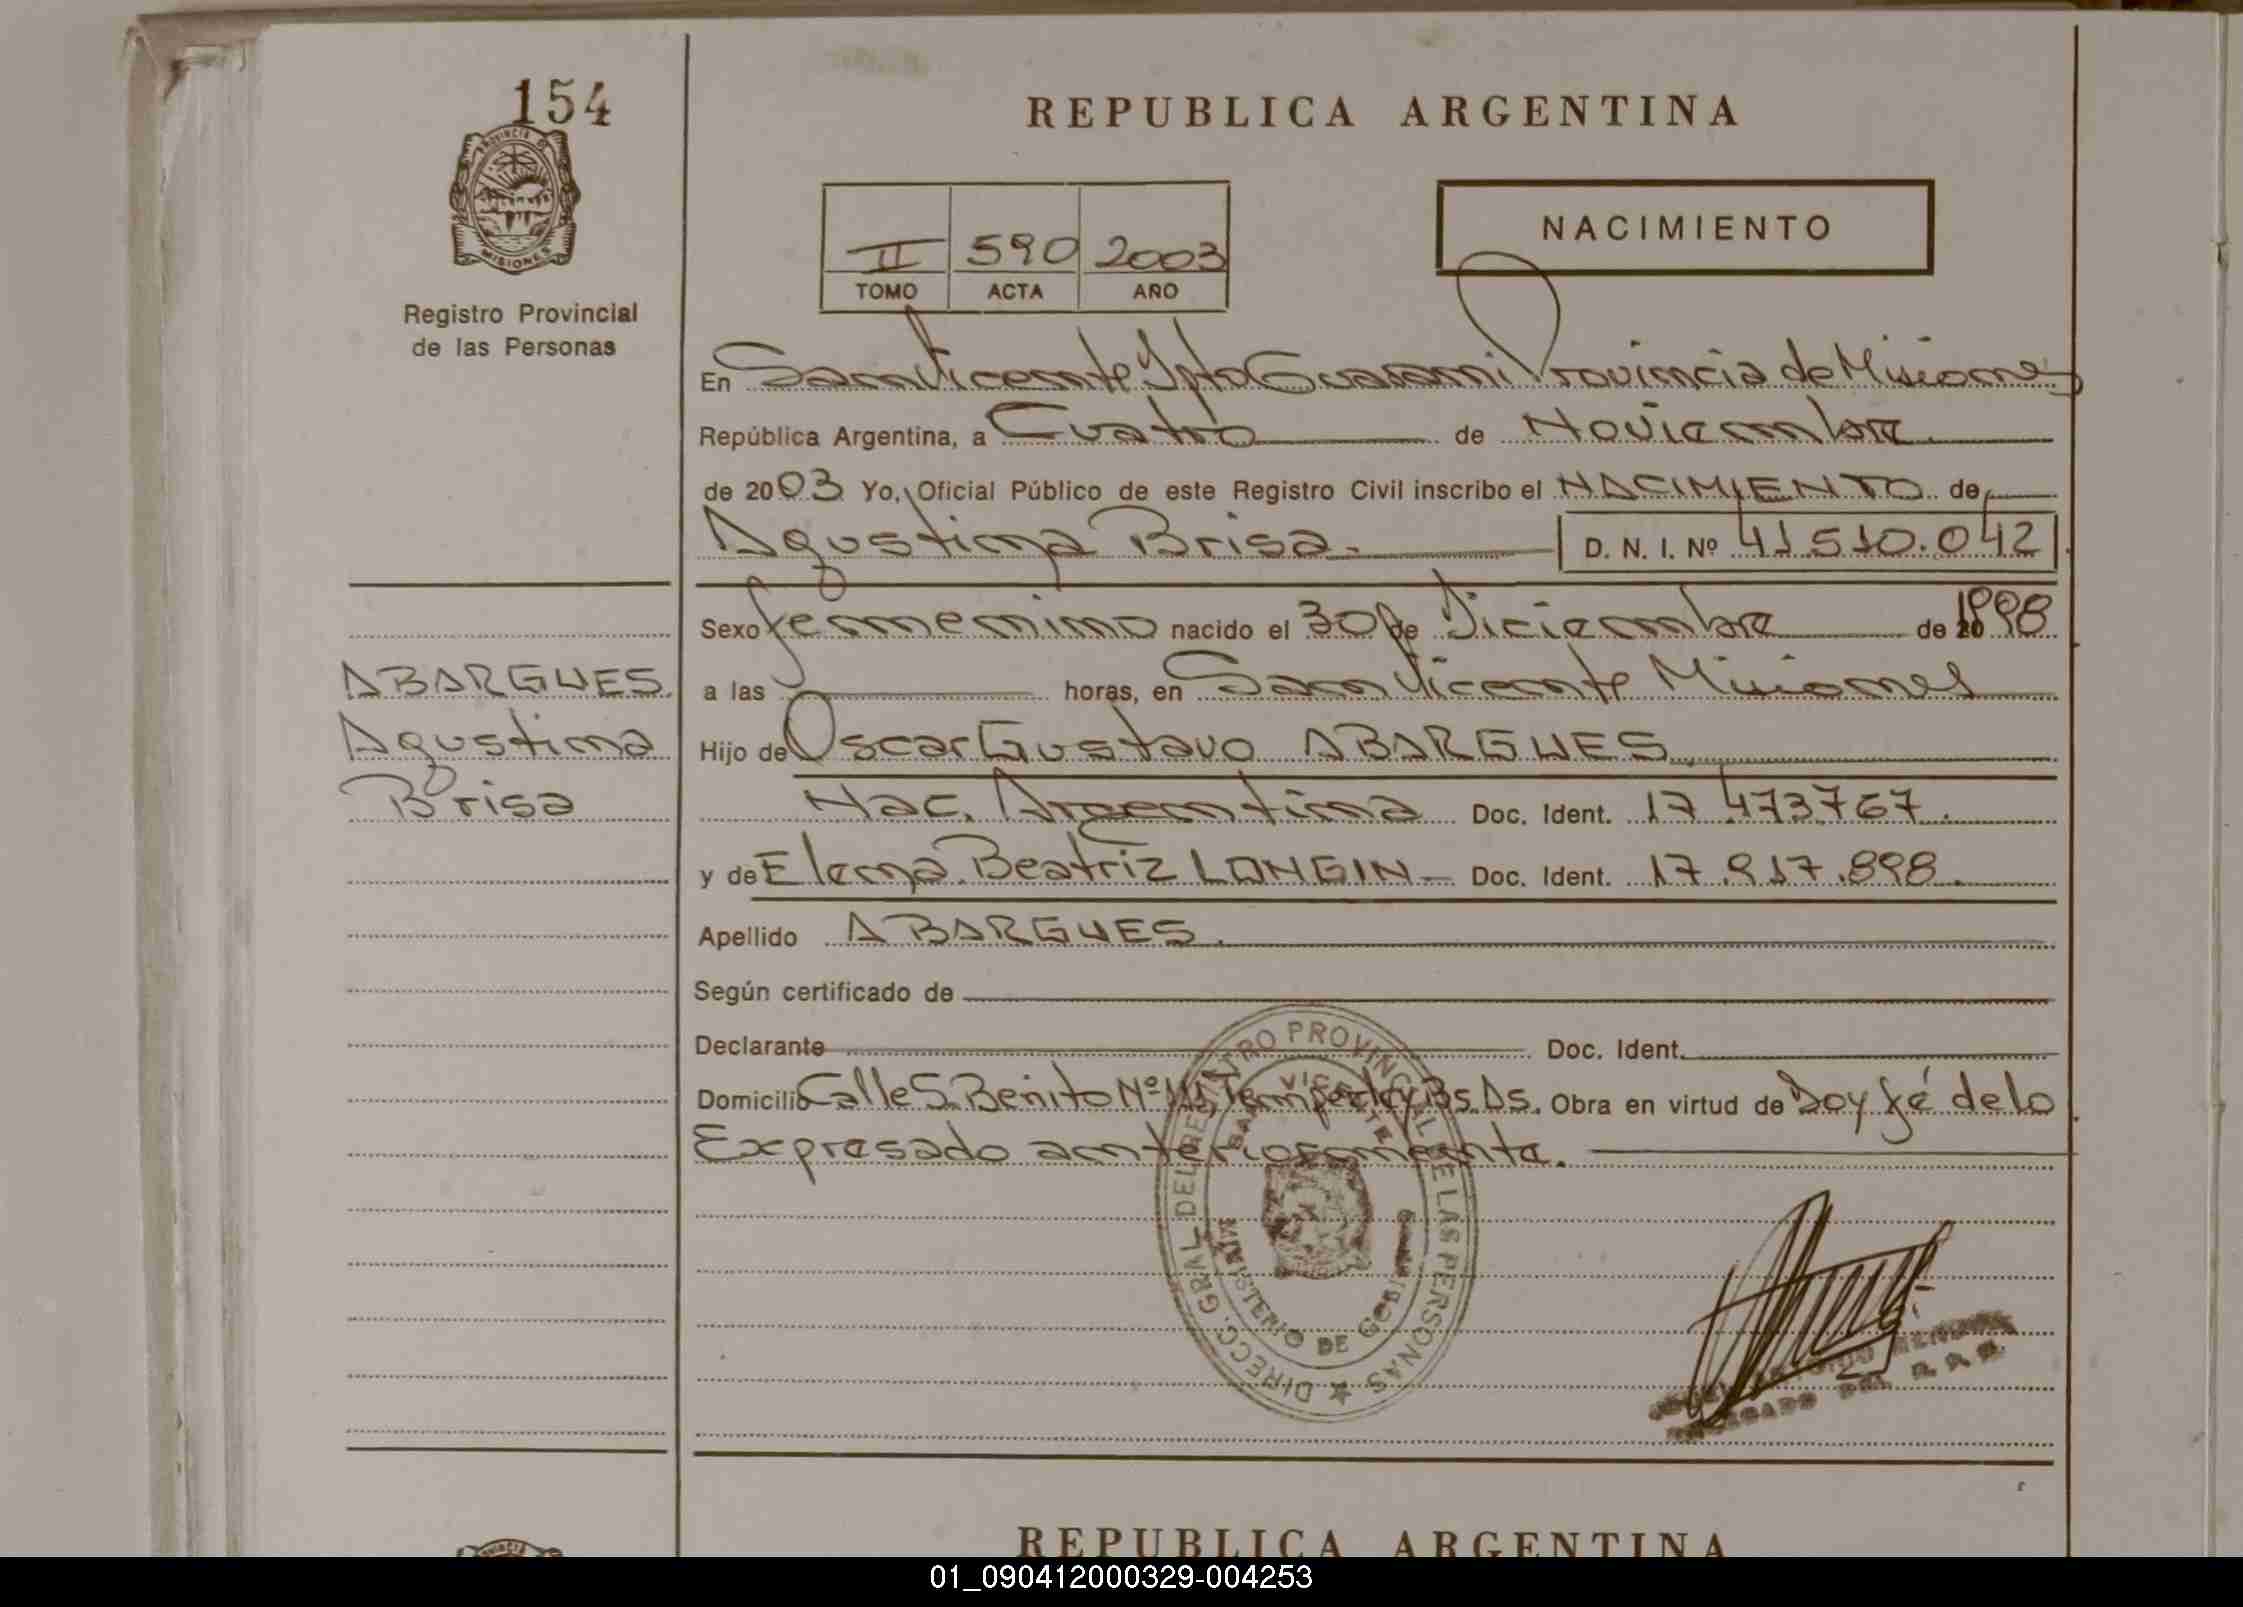 154
PROVINCIA DE
MISIONES
Registro Provincial
de las Personas
REPUBLICA ARGENTINA
II 590 2003
TOMO ACTA AÑO
NACIMIENTO
En San Vicente Dpto Guarani Provincia de Misiones
República Argentina, a Cuatro de Noviembre
de 2003 Yo, Oficial Público de este Registro Civil inscribo el NACIMIENTO de
Agustina Brisa.- D. N. I. Nº 41.510.042
Sexo femenino nacido el 30 de Diciembre de 1998
ABARGUES a las horas, en San Vicente Misiones
Agustina Hijo de Oscar Gustavo ABARGUES
Brisa Nac. Argentina Doc. Ident. 17.473767.
y de Elena Beatriz LONGIN - Doc. Ident. 17.917.898.
Apellido ABARGUES.
Según certificado de
Declarante Doc. Ident.
Domicilio Calle S. Benito Nº Temperley Bs. As. Obra en virtud de Doy fé de lo
Expresado anteriormente.
DIRECC. GRAL. DEL REGISTRO PROVINCIAL DE LAS PERSONAS
SAN VICENTE
MINISTERIO DE GOBIERNO
DEL R. P. P.
REPUBLICA ARGENTINA
01_090412000329-004253